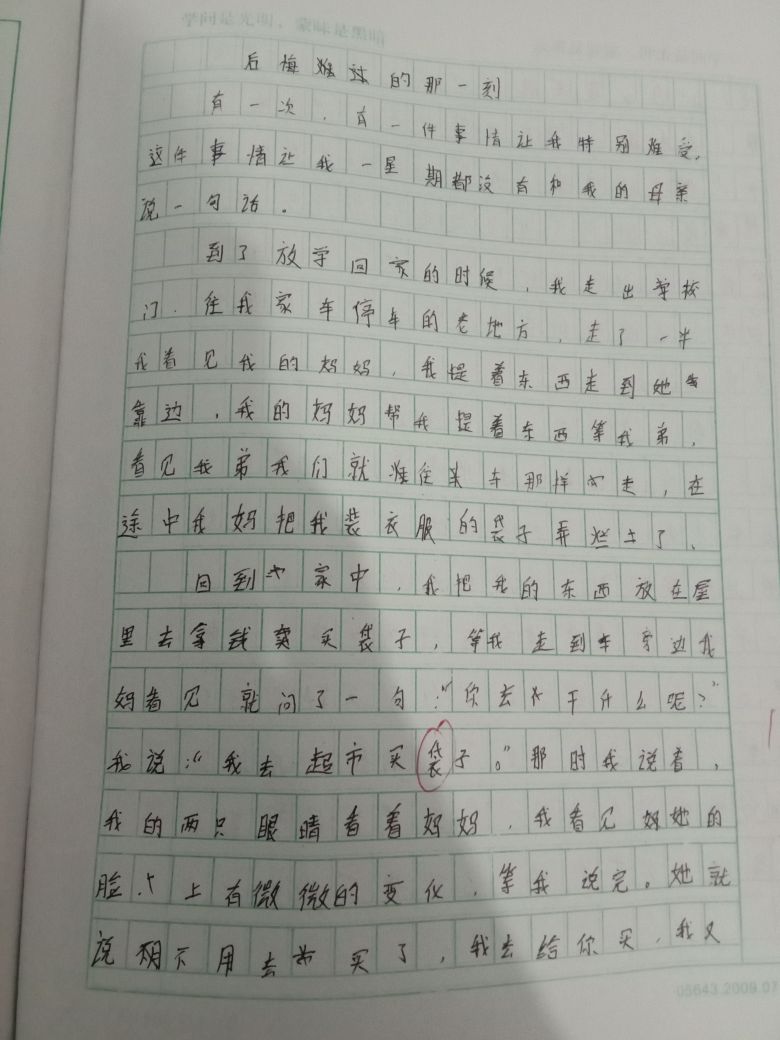 学问是光明，蒙昧是黑暗
后悔难过的那一刻
有一次，有一件事情让我特别难受，
这件事情让我一星期都没有和我的母亲
说一句话。
到了放学回家的时候，我走出学校
门，往我家车停车的老地方，走了一半
我看见我的妈妈，我提着东西走到她
靠边，我的妈妈帮我提着东西等我弟，
看见我弟我们就往车那样走，在
途中我妈把我装衣服的袋子弄烂了、
回到家中，我把我的东西放在屋
里去拿钱买袋子，等我走到车旁边我
妈看见就问了一句：“你去干什么呢？”
我说：“我去超市买袋子。”那时我说着，
我的两只眼睛看着妈妈，我看见妈她的
脸上有微微的变化，等我说完。她就
说不用去买了，我去给你买，我又
05643.2009.07